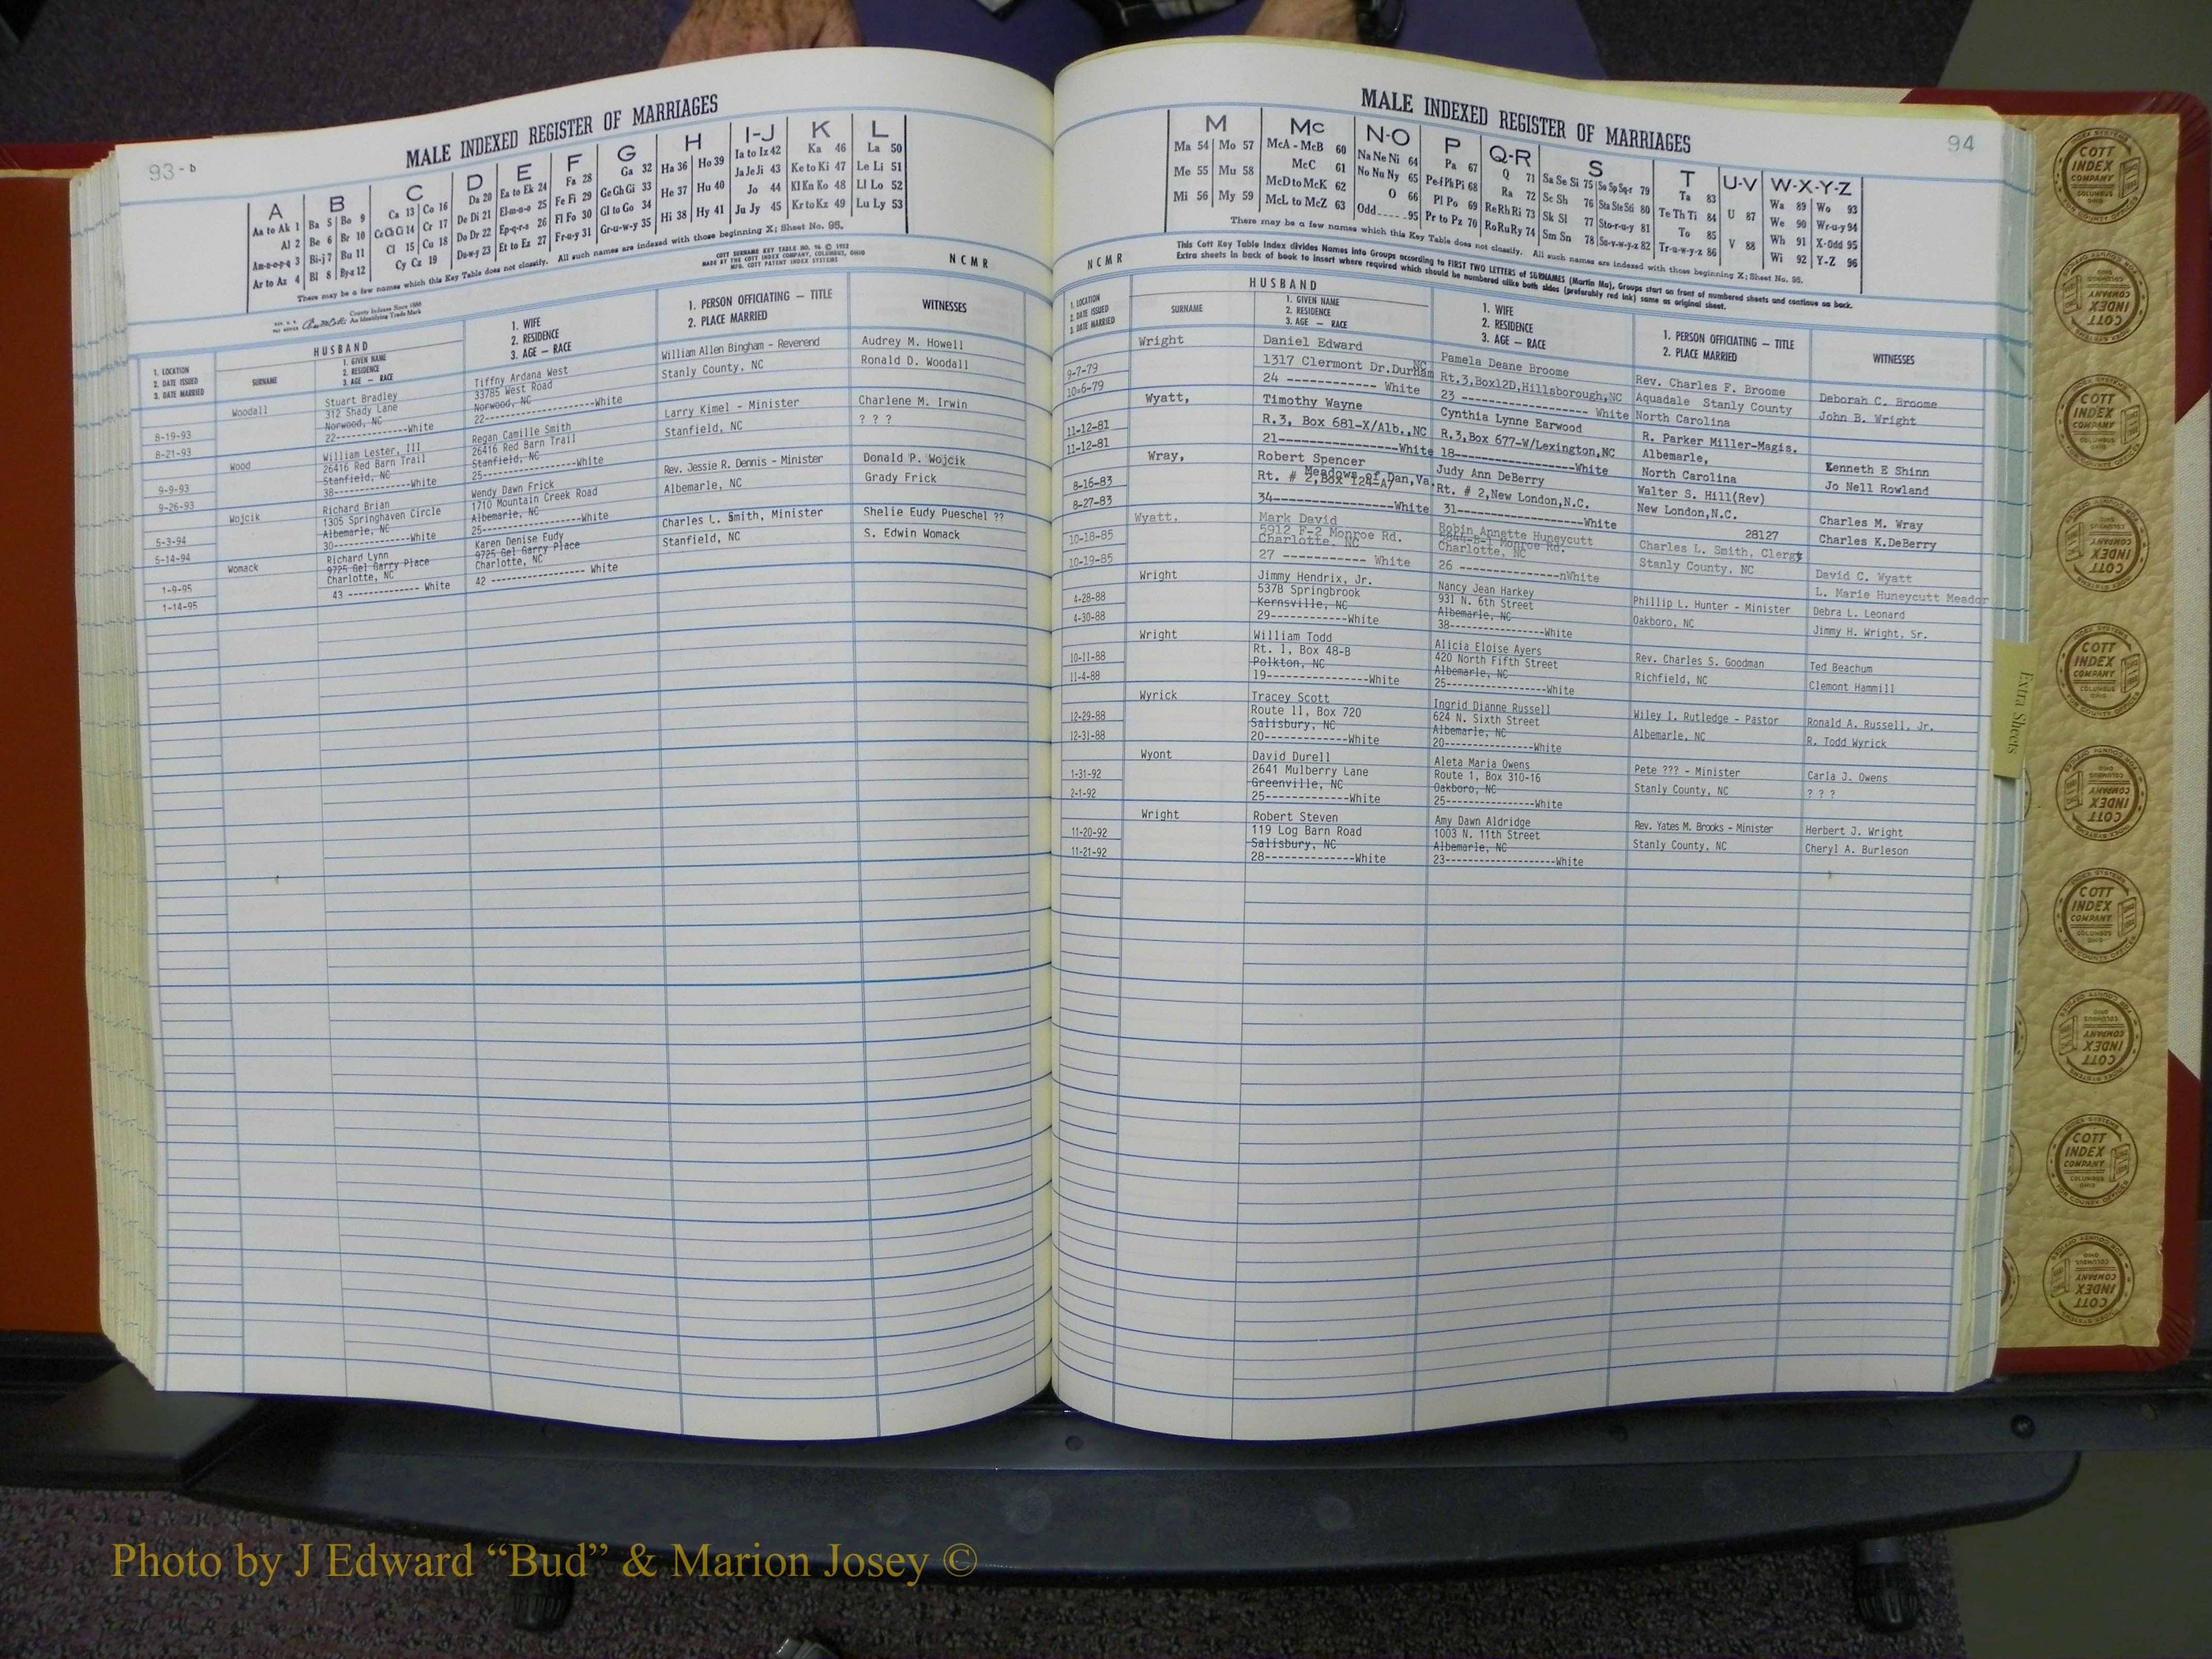 93-b
MALE INDEXED REGISTER OF MARRIAGES
A B C D E F G H I-J K L
Aa to Ak 1
Al 2
Am-n-o-p-q 3
Ar to Az 4
Ba 5 Bo 9
Be 6 Br 10
Bi-j 7 Bu 11
Bl 8 By-z 12
Ca 13 Co 16
Ce Ch Ci 14 Cr 17
Cl 15 Cu 18
Cy Cz 19
Da 20
De Di 21
Do Dr 22
Du-w-y 23
Ea to Ek 24
El-m-n-o 25
Ep-q-r-s 26
Et to Ez 27
Fa 28
Fe Fi 29
Fl Fo 30
Fr-u-y 31
Ga 32
Ge Gh Gi 33
Gl to Go 34
Gr-u-w-y 35
Ha 36 Ho 39
He 37 Hu 40
Hi 38 Hy 41
Ia to Iz 42
Ja Je Ji 43
Jo 44
Ju Jy 45
Ka 46
Ke to Ki 47
Kl Kn Ko 48
Kr to Kz 49
La 50
Le Li 51
Ll Lo 52
Lu Ly 53
There may be a few names which this Key Table does not classify. All such names are indexed with those beginning X; Sheet No. 95.
County Indexes Since 1888
An Identifying Trade Mark
COTT SURNAME KEY TABLE NO. 96 © 1952
MADE BY THE COTT INDEX COMPANY, COLUMBUS, OHIO
MFG. COTT PATENT INDEX SYSTEMS
NCMR
1. LOCATION
2. DATE ISSUED
3. DATE MARRIED
HUSBAND
SURNAME
1. GIVEN NAME
2. RESIDENCE
3. AGE — RACE
1. WIFE
2. RESIDENCE
3. AGE — RACE
1. PERSON OFFICIATING — TITLE
2. PLACE MARRIED
WITNESSES
Woodall
8-19-93
8-21-93
Stuart Bradley
312 Shady Lane
Norwood, NC
22-------------White
Tiffny Ardana West
33785 West Road
Norwood, NC
22-------------------White
William Allen Bingham - Reverend
Stanly County, NC
Audrey M. Howell
Ronald D. Woodall
Wood
9-9-93
9-26-93
William Lester, III
26416 Red Barn Trail
Stanfield, NC
38-------------White
Regan Camille Smith
26416 Red Barn Trail
Stanfield, NC
25----------------White
Larry Kimel - Minister
Stanfield, NC
Charlene M. Irwin
? ? ?
Wojcik
5-3-94
5-14-94
Richard Brian
1305 Springhaven Circle
Albemarle, NC
30-------------White
Wendy Dawn Frick
1710 Mountain Creek Road
Albemarle, NC
25----------------White
Rev. Jessie R. Dennis - Minister
Albemarle, NC
Donald P. Wojcik
Grady Frick
Womack
1-9-95
1-14-95
Richard Lynn
9725 Gel Garry Place
Charlotte, NC
43 ------------- White
Karen Denise Eudy
9725 Gel Garry Place
Charlotte, NC
42 ----------------- White
Charles L. Smith, Minister
Stanfield, NC
Shelie Eudy Pueschel ??
S. Edwin Womack
94
MALE INDEXED REGISTER OF MARRIAGES
M Mc N-O P Q-R S T U-V W-X-Y-Z
Ma 54 Mo 57
Me 55 Mu 58
Mi 56 My 59
McA - McB 60
McC 61
McD to McK 62
McL to McZ 63
Na Ne Ni 64
No Nu Ny 65
O 66
Odd 95
Pa 67
Pe-f Ph Pi 68
Pl Po 69
Pr to Pz 70
Q 71
Ra 72
Re Rh Ri 73
Ro Ru Ry 74
Sa Se Si 75 So Sp Sq-r 79
Sc Sh 76 Sta Ste Sti 80
Sk Sl 77 Sto-r-u-y 81
Sm Sn 78 Su-v-w-y-z 82
Ta 83
Te Th Ti 84
To 85
Tr-u-w-y-z 86
U 87
V 88
Wa 89 Wo 93
We 90 Wr-u-y 94
Wh 91 X-Odd 95
Wi 92 Y-Z 96
There may be a few names which this Key Table does not classify. All such names are indexed with those beginning X; Sheet No. 95.
NCMR
This Cott Key Table Index divides Names into Groups according to FIRST TWO LETTERS of SURNAMES (Martin Ma), Groups start on front of numbered sheets and continue on back.
Extra sheets in back of book to insert where required which should be numbered alike both sides (preferably red ink) same as original sheet.
1. LOCATION
2. DATE ISSUED
3. DATE MARRIED
HUSBAND
SURNAME
1. GIVEN NAME
2. RESIDENCE
3. AGE — RACE
1. WIFE
2. RESIDENCE
3. AGE — RACE
1. PERSON OFFICIATING — TITLE
2. PLACE MARRIED
WITNESSES
Wright
9-7-79
10-6-79
Daniel Edward
1317 Clermont Dr.Durham NC
24 ------------ White
Pamela Deane Broome
Rt.3,Box12D,Hillsborough,NC
23 ----------------- White
Rev. Charles F. Broome
Aquadale Stanly County
North Carolina
Deborah C. Broome
John B. Wright
Wyatt,
11-12-81
11-12-81
Timothy Wayne
R.3, Box 681-X/Alb.,NC
21-----------------White
Cynthia Lynne Earwood
R.3,Box 677-W/Lexington,NC
18----------------White
R. Parker Miller-Magis.
Albemarle,
North Carolina
Kenneth E Shinn
Jo Nell Rowland
Wray,
8-16-83
8-27-83
Robert Spencer
Meadows of Dan,Va.
Rt. # 2,Box 124-A/
34-----------------White
Judy Ann DeBerry
Rt. # 2,New London,N.C.
31-----------------White
Walter S. Hill(Rev)
New London,N.C.
28127
Charles M. Wray
Charles K.DeBerry
Wyatt,
10-18-85
10-19-85
Mark David
5912 F-2 Monroe Rd.
Charlotte, NC
27 ------------ White
Robin Annette Huneycutt
Monroe Rd.
Charlotte, NC
26 --------------nWhite
Charles L. Smith, Clergy
Stanly County, NC
David C. Wyatt
L. Marie Huneycutt Meador
Wright
4-28-88
4-30-88
Jimmy Hendrix, Jr.
537B Springbrook
Kernsville, NC
29-------------White
Nancy Jean Harkey
931 N. 6th Street
Albemarle, NC
38----------------White
Phillip L. Hunter - Minister
Oakboro, NC
Debra L. Leonard
Jimmy H. Wright, Sr.
Wright
10-11-88
11-4-88
William Todd
Rt. 1, Box 48-B
Polkton, NC
19-----------------White
Alicia Eloise Ayers
420 North Fifth Street
Albemarle, NC
25----------------White
Rev. Charles S. Goodman
Richfield, NC
Ted Beachum
Clemont Hammill
Wyrick
12-29-88
12-31-88
Tracey Scott
Route 11, Box 720
Salisbury, NC
20-------------White
Ingrid Dianne Russell
624 N. Sixth Street
Albemarle, NC
20--------------White
Wiley I. Rutledge - Pastor
Albemarle, NC
Ronald A. Russell, Jr.
R. Todd Wyrick
Wyont
1-31-92
2-1-92
David Durell
2641 Mulberry Lane
Greenville, NC
25-------------White
Aleta Maria Owens
Route 1, Box 310-16
Oakboro, NC
25--------------White
Pete ??? - Minister
Stanly County, NC
Carla J. Owens
? ? ?
Wright
11-20-92
11-21-92
Robert Steven
119 Log Barn Road
Salisbury, NC
28--------------White
Amy Dawn Aldridge
1003 N. 11th Street
Albemarle, NC
23------------------White
Rev. Yates M. Brooks - Minister
Stanly County, NC
Herbert J. Wright
Cheryl A. Burleson
Extra Sheets
INDEX SYSTEMS
COTT
INDEX
COMPANY
COLUMBUS
OHIO
FOR COUNTY OFFICES
Photo by J Edward “Bud” & Marion Josey ©